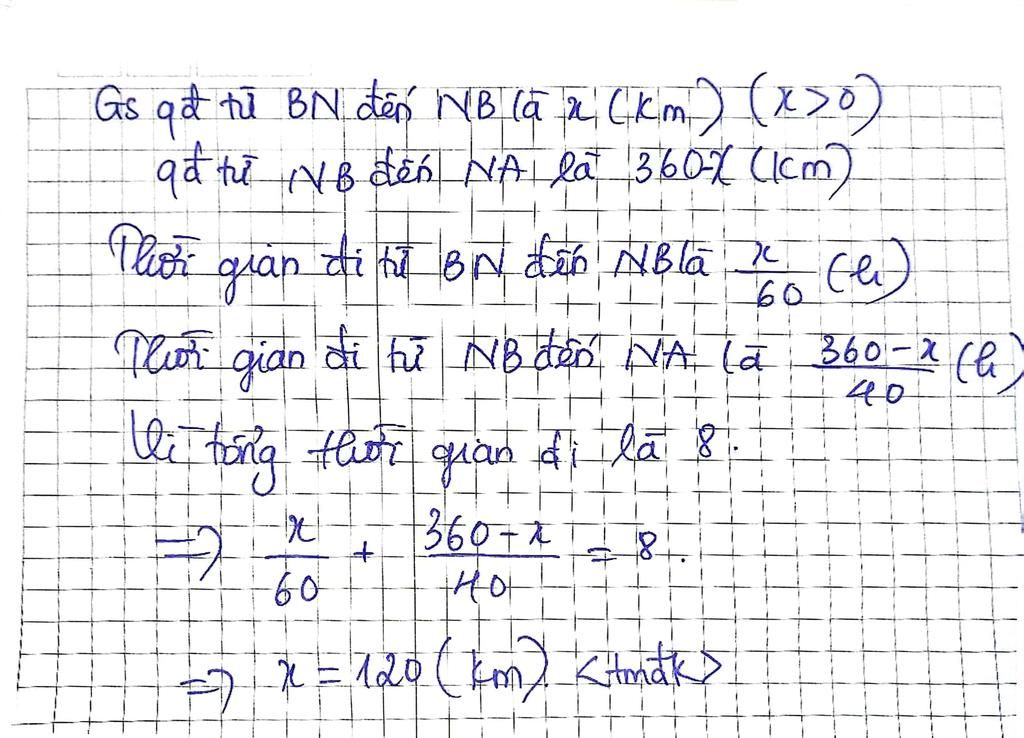 Gs qđ từ BN đến NB là x (km) (x>0)
qđ từ NB đến NA là 360-x (km)
Thời gian đi từ BN đến NB là x/60 (h)
Thời gian đi từ NB đến NA là 360-x/40 (h)
Vì tổng thời gian đi là 8.
=> x/60 + 360-x/40 = 8.
=> x = 120 (km) <tmđk>